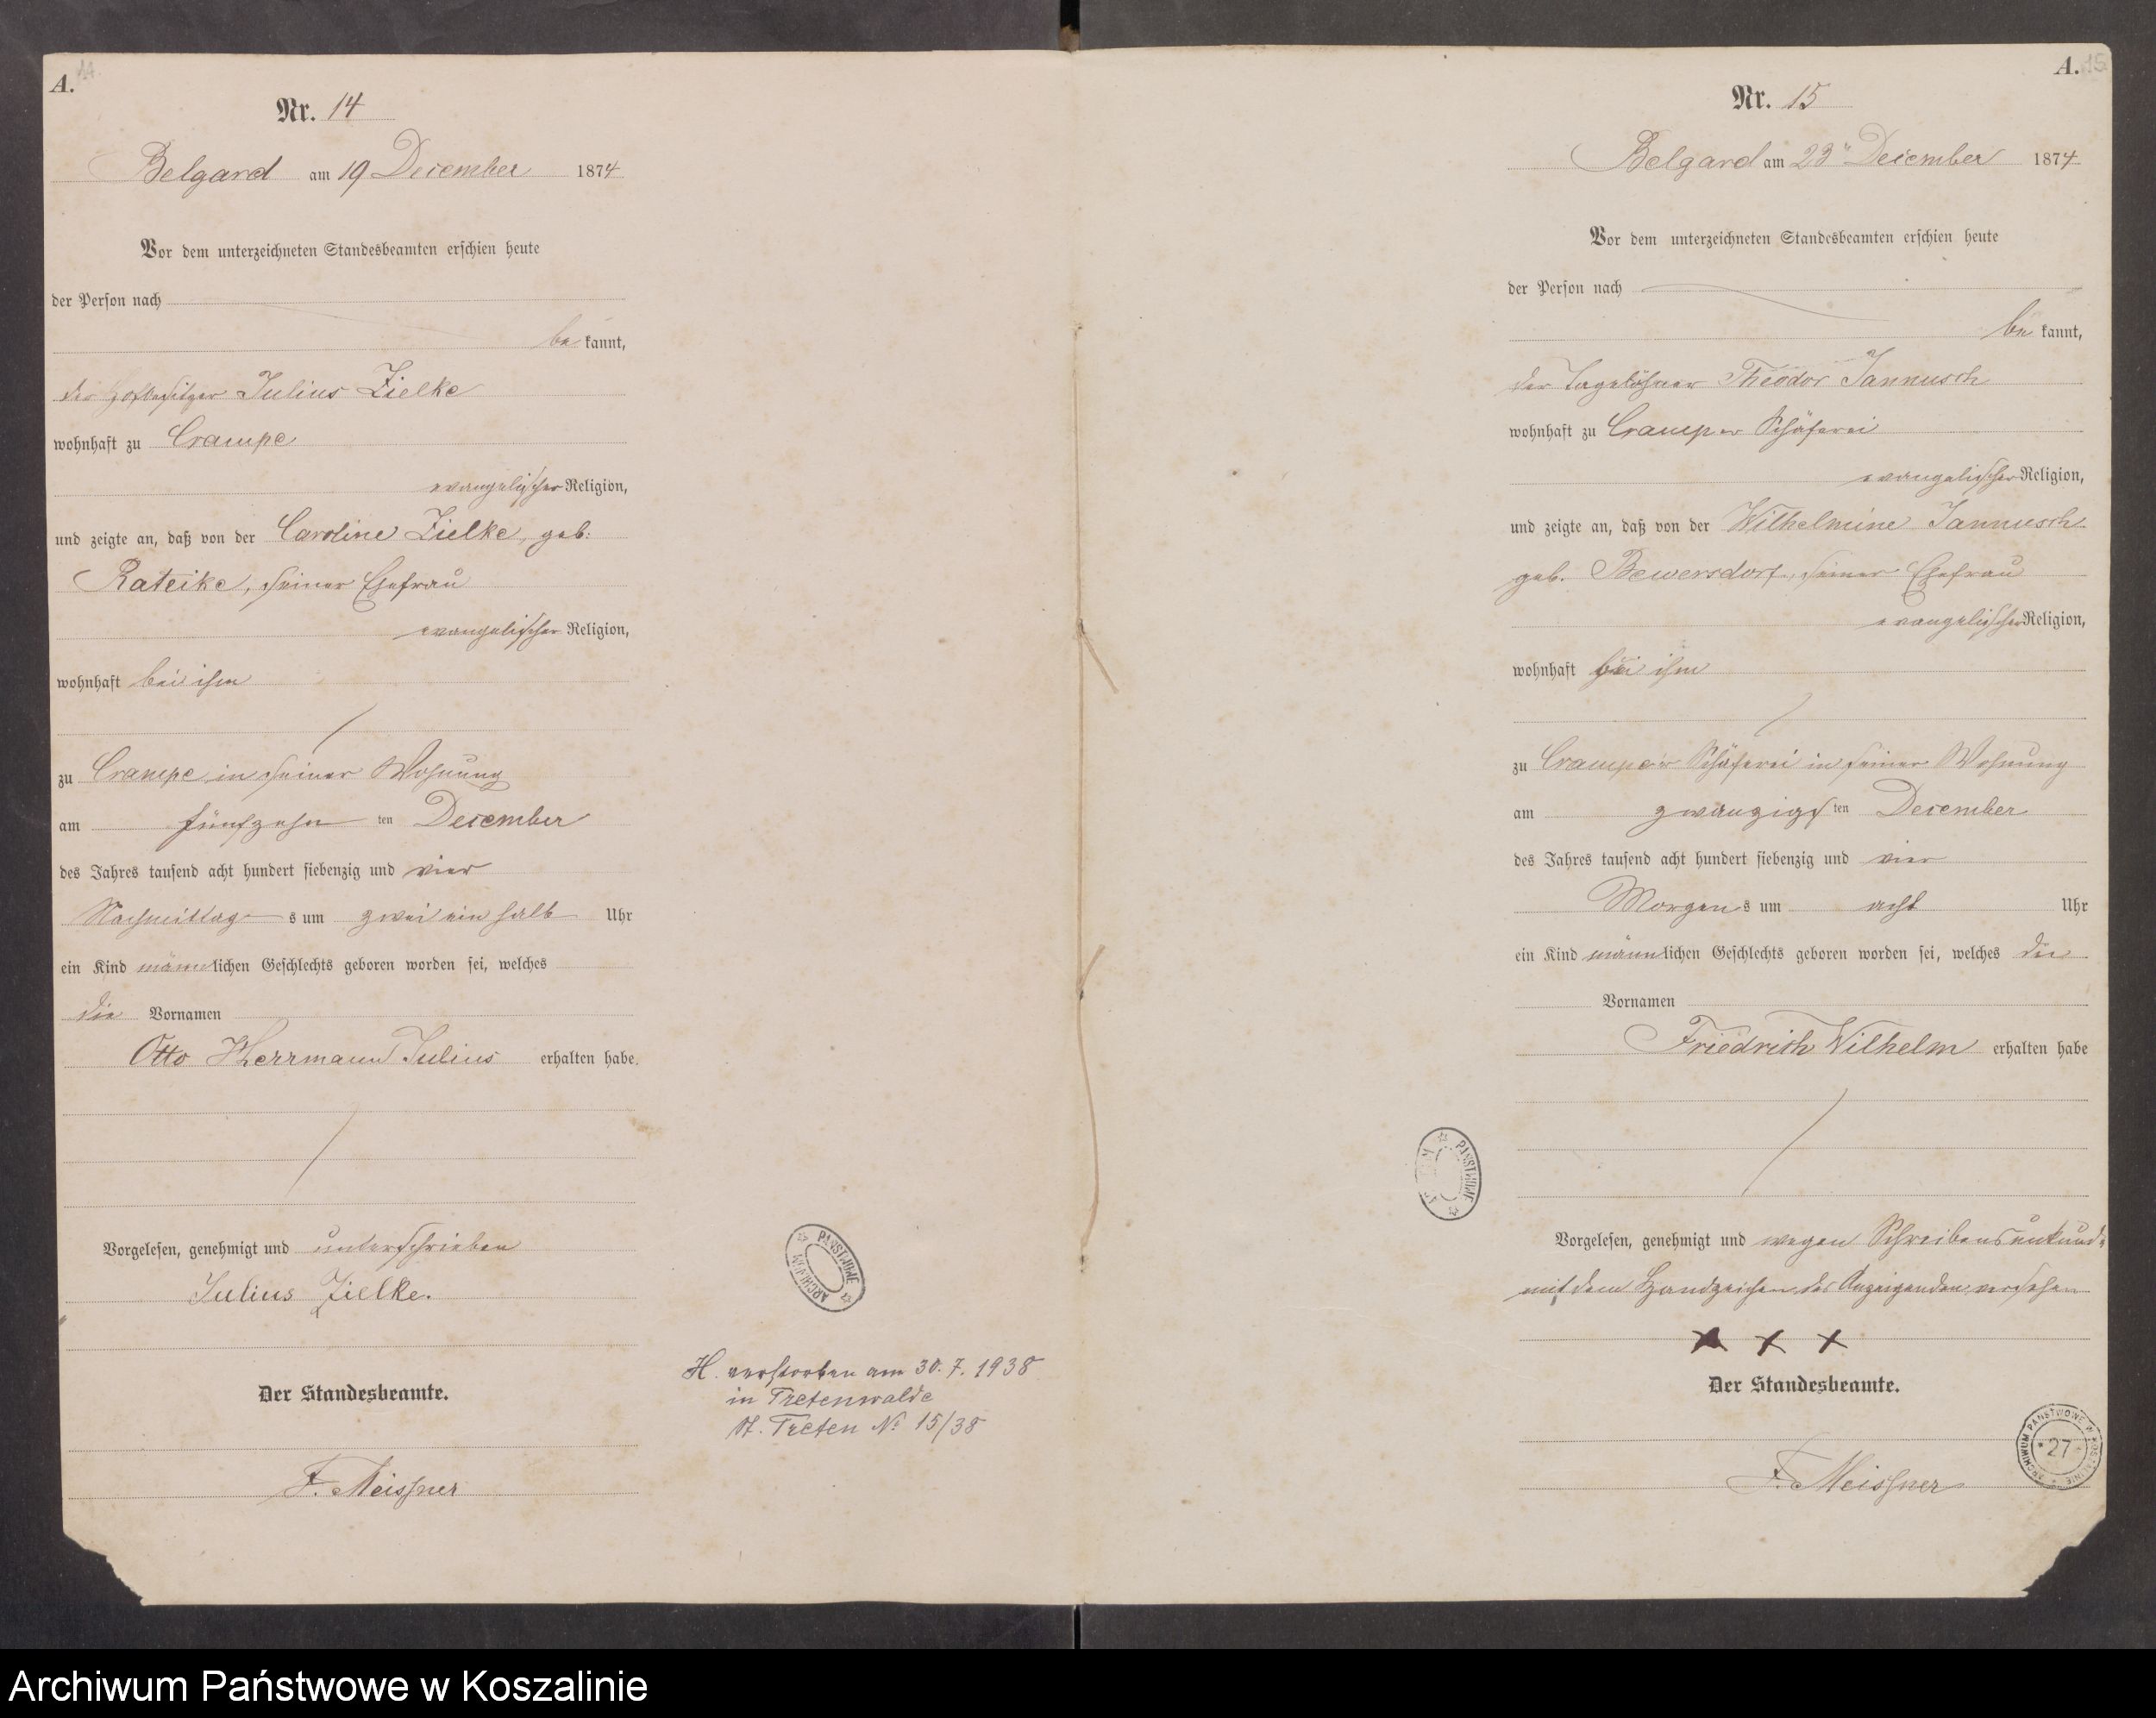 A. 14.
Nr. 14
Belgard am 19 December 1874
Vor dem unterzeichneten Standesbeamten erschien heute
der Person nach
be kannt,
der Hofbesitzer Julius Zielke
wohnhaft zu Crampe
evangelischer Religion,
und zeigte an, daß von der Caroline Zielke, geb:
Rateike, seiner Ehefrau
evangelischer Religion,
wohnhaft bei ihm
zu Crampe in seiner Wohnung
am fünfzehn ten December
des Jahres tausend acht hundert siebenzig und vier
Nachmittag s um zwei ein halb Uhr
ein Kind männlichen Geschlechts geboren worden sei, welches
die Vornamen
Otto Herrmann Julius erhalten habe.
Vorgelesen, genehmigt und unterschrieben
Julius Zielke.
Der Standesbeamte.
F. Meissner
ARCHIWUM PAŃSTWOWE
H. verstorben am 30.7.1938
in Tretenwalde
St. Treten № 15/38
A. 15
Nr. 15
Belgard am 23 December 1874
Vor dem unterzeichneten Standesbeamten erschien heute
der Person nach
be kannt,
der Tagelöhner Theodor Jannusch
wohnhaft zu Cramper Schäferei
evangelischer Religion,
und zeigte an, daß von der Wilhelmine Jannusch
geb. Bewersdorf, seiner Ehefrau
evangelischer Religion,
wohnhaft bei ihm
zu Cramper Schäferei in seiner Wohnung
am zwanzigs ten December
des Jahres tausend acht hundert siebenzig und vier
Morgens um acht Uhr
ein Kind männlichen Geschlechts geboren worden sei, welches die
Vornamen
Friedrich Wilhelm erhalten habe
PAŃSTWOWE
Vorgelesen, genehmigt und wegen Schreibensunkund.
mit dem Handzeichen des Anzeigenden versehen
x x x
Der Standesbeamte.
F. Meissner
ARCHIWUM PAŃSTWOWE W KOSZALINIE
* 27 *
Archiwum Państwowe w Koszalinie